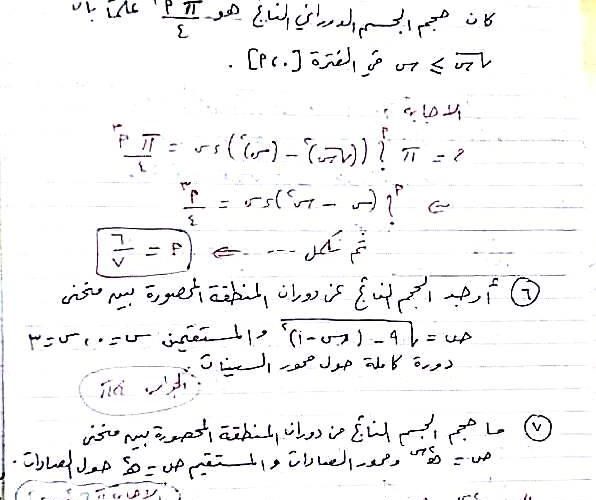 كان حجم الجسم الدوراني الناتج هو π م٣/٤ علماً بأن
√س ≥ س في الفترة [٠، م].
الاجابة:
ح = π ∫٠^م ((√س)٢ - (س)٢) ءس = π م٣/٤
⇐ ∫٠^م (س - س٢) ءس = م٣/٤
ثم نكمل .... ⇐ م = ٦/٧
٦) أوجد الحجم الناتج عن دوران المنطقة المحصورة بين منحنى
ص = √(٩ - (س-١)٢) والمستقيمين س = ٠، س = ٣
دورة كاملة حول محور السينات.
الجواب
٧) ما حجم الجسم الناتج من دوران المنطقة المحصورة بين منحنى
ص = هـ^س ومحور الصادات والمستقيم ص = هـ حول الصادات.
الاجابة